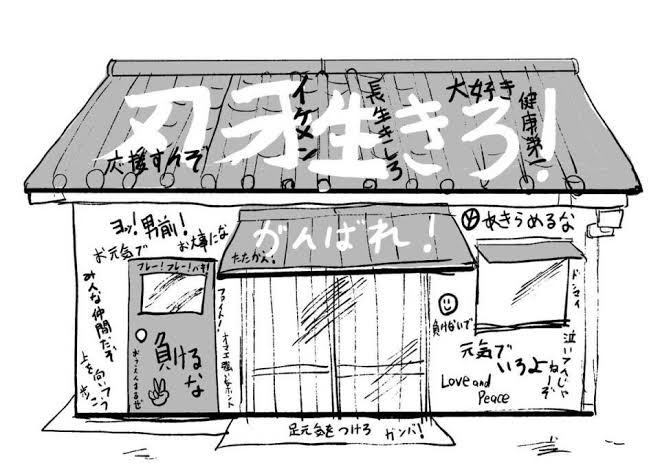 刃牙生きろ!
イケメン
長生きしろ
大好き
健康第一
応援すんぞ
ヨッ!男前!
お元気で
お大事にな
がんばれ!
たたかえ!
あきらめるな
フレー!フレー!バキ!
みんな仲間だぞ
上を向いて
負けるな
おうえんするぜ
ファイト!
オマエ強いゼホント
負けないで
ドンマイ
泣いてんじゃ
ねーぞ
元気で
いろよ
Love and
Peace
足元気をつけろ
ガンバ!